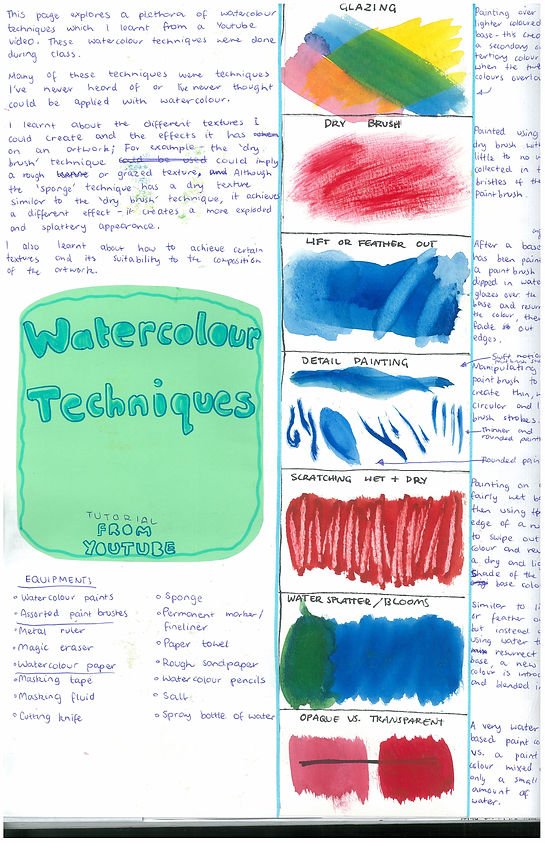 This page explores a plethora of watercolour
techniques which I learnt from a Youtube
video. These watercolour techniques were done
during class.
Many of these techniques were techniques
I've never heard of or I've never thought
could be applied with watercolour.
I learnt about the different textures I
could create and the effects it has
on an artwork; For example - the 'dry
brush' technique could be used could imply
a rough or grazed texture, and Although
the 'sponge' technique has a dry texture
similar to the 'dry brush' technique, it achieves
a different effect - it creates a more exploded
and splattery appearance.
I also learnt about how to achieve certain
textures and its suitability to the composition
of the artwork.
Watercolour
Techniques
TUTORIAL
FROM
YOUTUBE
EQUIPMENTS
Watercolour paints
Assorted paint brushes
Metal ruler
Magic eraser
Watercolour paper
Masking tape
Masking fluid
Cutting knife
Sponge
Permanent marker/
fineliner
Paper towel
Rough sandpaper
Watercolour pencils
Salt
Spray bottle of water
GLAZING
Painting over
lighter coloured
base - this crea
a secondary o
tertiary colour
when the two
colours overla
DRY BRUSH
Painted using
dry brush with
little to no
collected in t
bristles of th
paint brush
LIFT OR FEATHER OUT
After a base
has been pain
a paint brush
dipped in wate
glazes over the
base and resurr
the colour, then
fade out
edges.
DETAIL PAINTING
Soft motion
Manipulating
paintbrush to
create thin,
circular and l
brush strokes.
Thinner and
rounded paint
Rounded pain
SCRATCHING WET + DRY
Painting on
fairly wet b
then using t
edge of a ru
to swipe out
colour and rev
a dry and lig
shade of the
base colo
WATER SPLATTER / BLOOMS
Similar to li
or feather o
but instead o
using water t
resurrect
base, a new
colour is introd
and blended in
OPAQUE VS. TRANSPARENT
A very water
based paint co
vs. a paint
colour mixed
only a small
amount of
water.